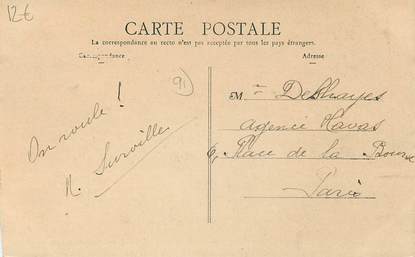 12€
CARTE POSTALE
La correspondance au recto n'est pas acceptée par tous les pays étrangers.
Correspondance
Adresse
91
On roule !
N. Surville
M
DeBhayes
Agence Havas
6, Place de la Bourse
Paris